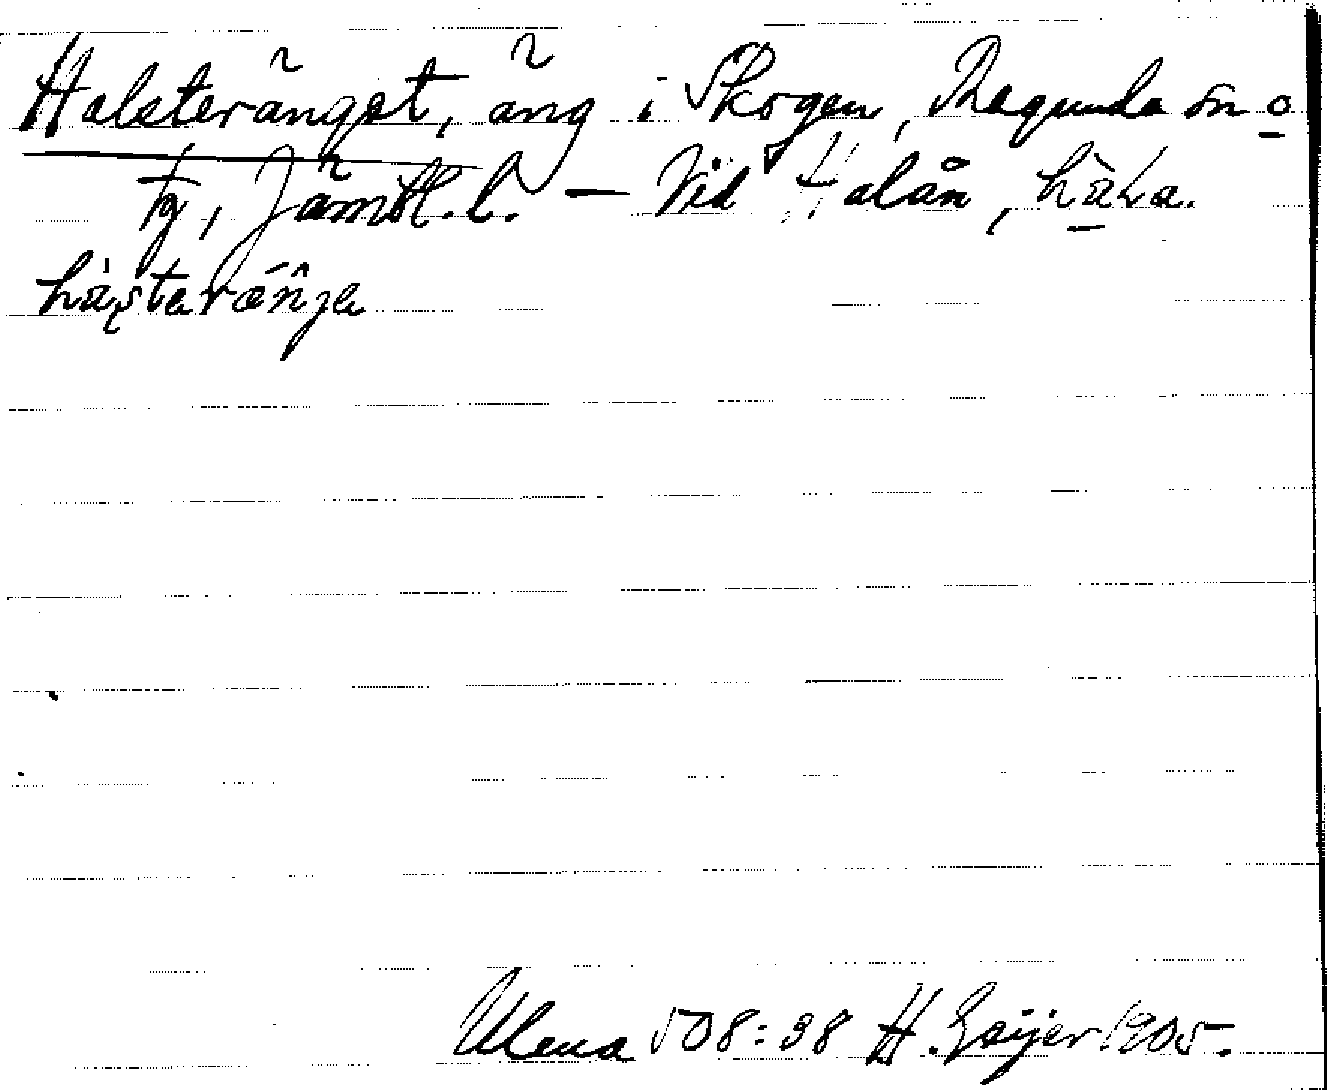 Halsterängat, äng i Skogen, Ragunda sn o
tg, Jämtl. l. – Vid Halån, hàLa.
hàʂtaränja
Ulma 508:38 H. Geijer 1905.